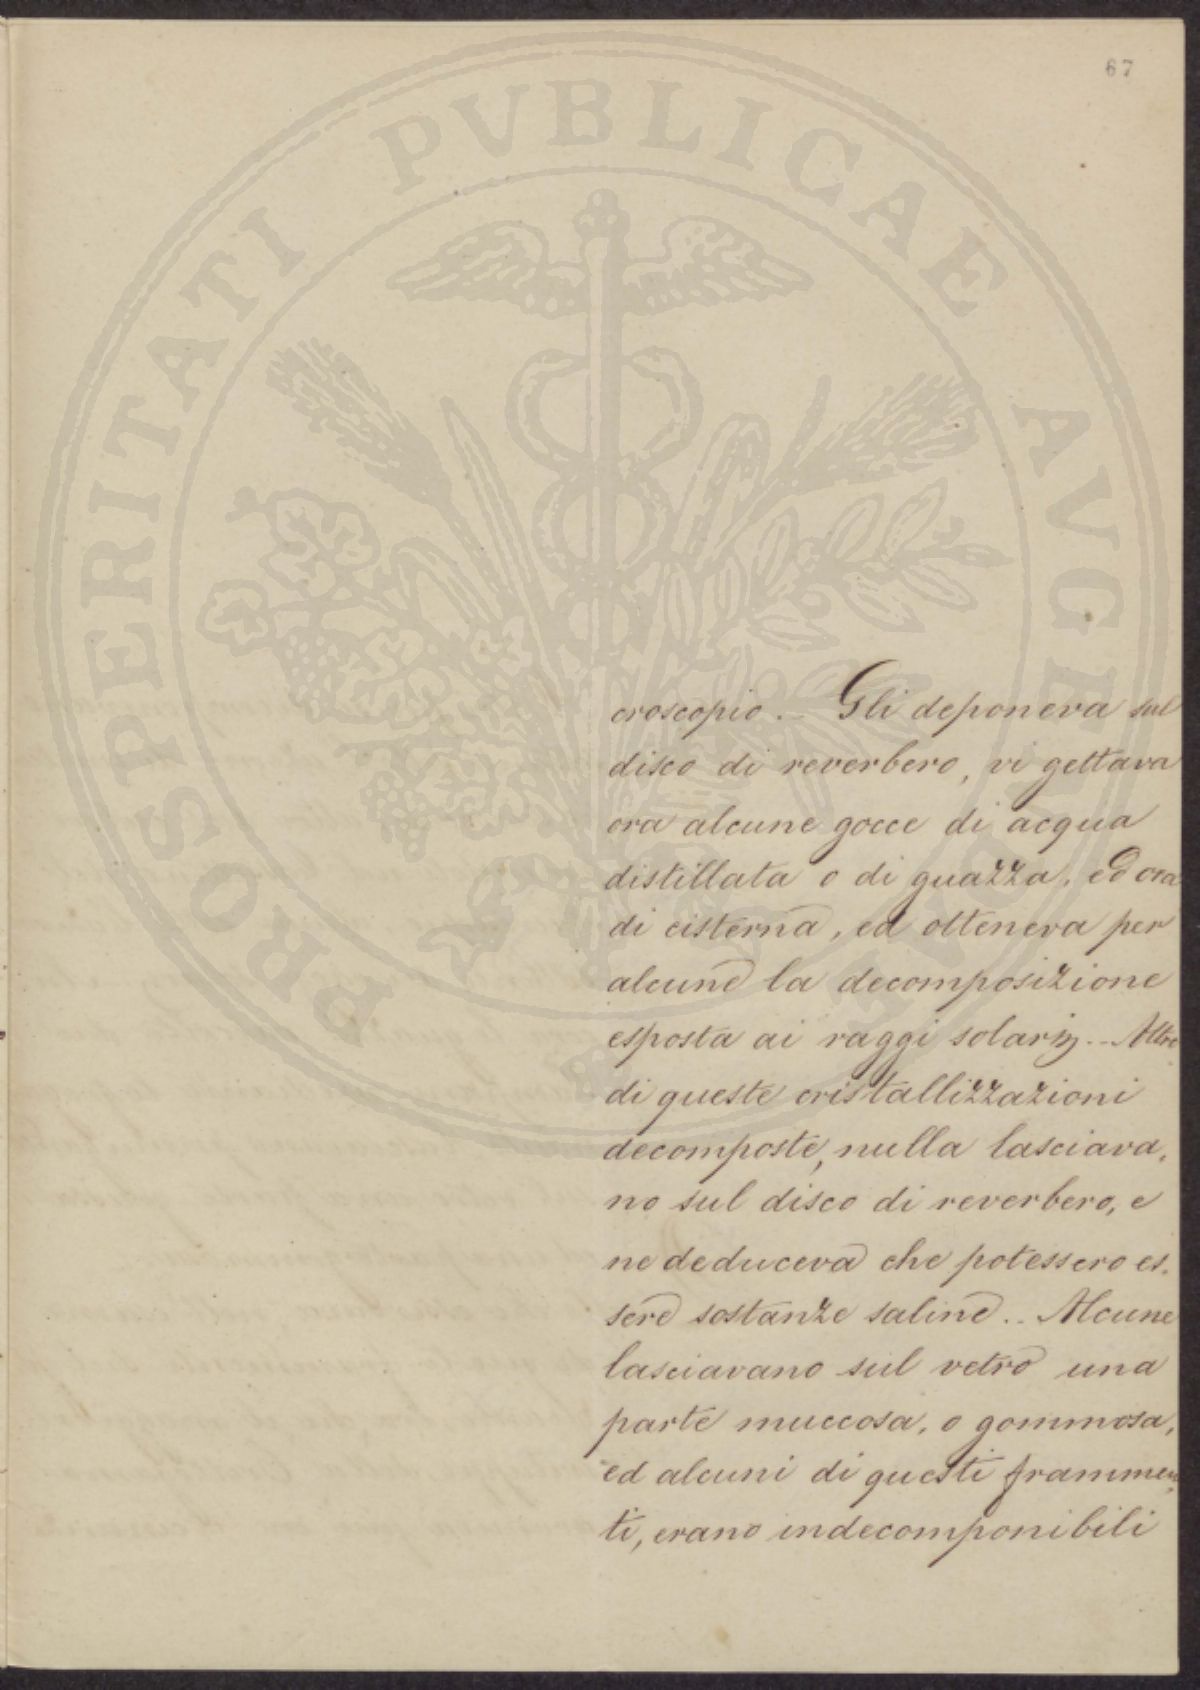 67
PROSPERITATI PVBLICAE AVGENDAE
croscopio. – Gli deponeva sul
disco di reverbero, vi gettava
ora alcune gocce di acqua
distillata o di guazza, ed ora
di cisterna, ed otteneva per
alcune la decomposizione
esposta ai raggi solarij. – Altre
di queste cristallizzazioni
decomposte, nulla lasciava,
no sul disco di reverbero, e
ne deduceva che potessero es.
sere sostanze saline. . Alcune
lasciavano sul vetro una
parte muccosa, o gommosa,
ed alcuni di questi frammen,
ti, erano indecomponibili